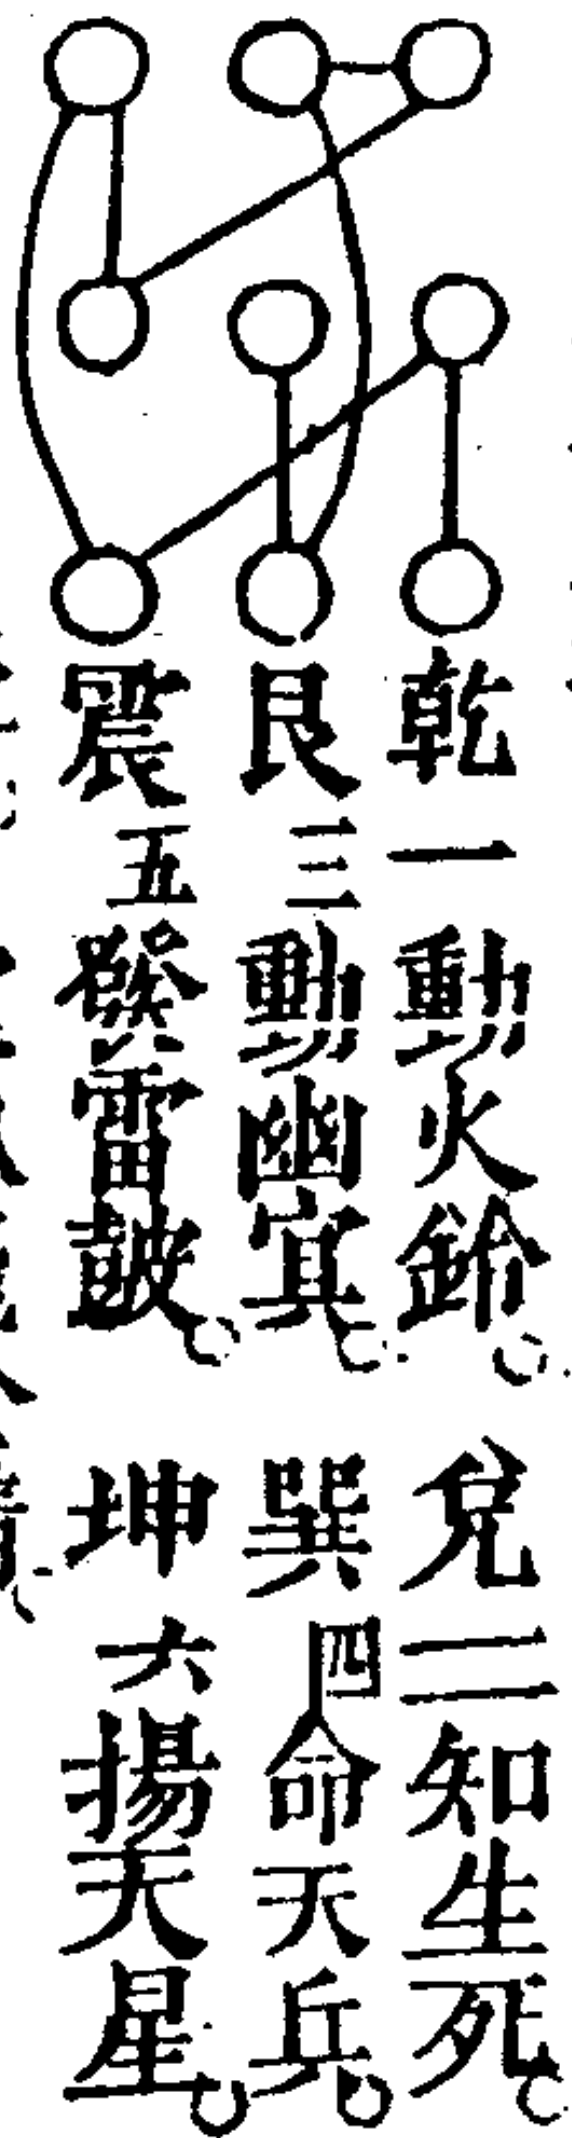 乾一動火鈴。兌二知生死。
艮三動幽冥。巽四命天兵。
震五發雷鼓。坤六揚天星。